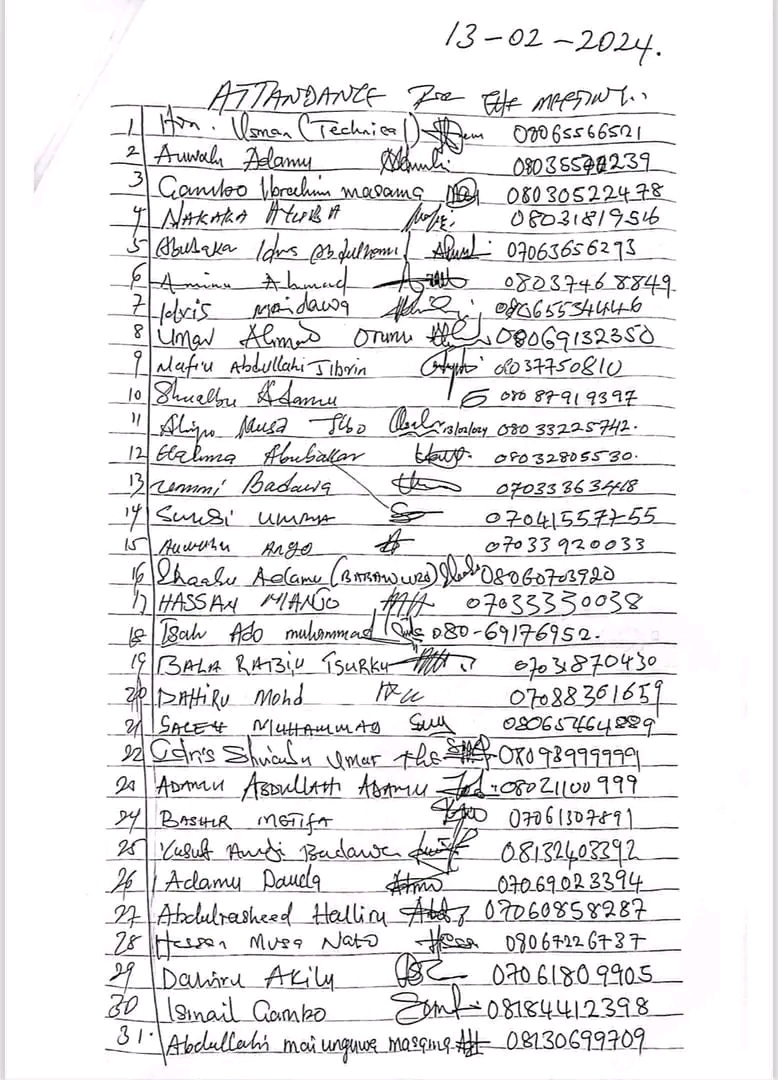 13-02-2024.
ATTANDANCE For THE MEETING..
1 Hon. Usman (Technical) 08065566521
2 Auwalu Adamu
3 Gambo Ibrahim masama 08030522478
4 NAKAKA AYUBA 08031819516
5 Abubakar Idris Abdulhamid 07063656293
6 Aminu Ahmad 08037468849
7 Idris maidawa 08065534446
8 Umar Ahmad 08069132350
9 Nafiu Abdullahi Jibrin 08037750810
10 Shuaibu Adamu 08087919397
11 Aliyu Musa 13/02/024 08033225742.
12 Halima Abubakar 08032805530.
13 Badawa 07033363448
14 Sunusi UMMA 07041557755
15 Auwalu Ango 07033920033
16 Shaabu Adamu (BABAWURO) 08060703920
17 HASSAN MIANJO 07033330038
18 Isah Ado muhammad 080-69176952.
19 BALA RABIU TSURKU 07031870430
20 DAHIRU Mohd 07088361659
21 SALEH MUHAMMAD 08065464889
22 Idris Shuaibu Umar 08098999999
23 ADAMU ABDULLAHI ADAMU 08021100999
24 BASHIR METIFA 07061307891
25 Yusuf Badawa 08132403392
26 Adamu Dauda 07069023394
27 Abdulrasheed Halliru 07060858287
28 Hassan Musa Nato 08067226737
29 Dahiru AKILY 07061809905
30 Ismail Gambo 08184412398
31. Abdullahi mai unguwa masama 08130699709